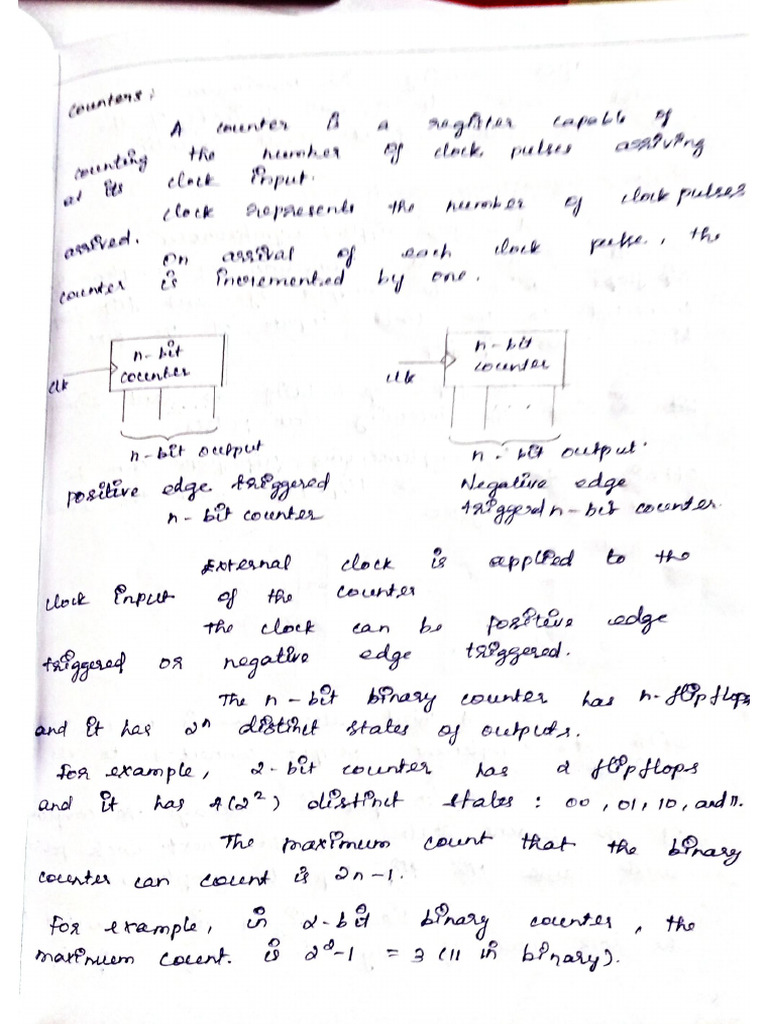 counters:
A counter is a register capable of
counting the number of clock pulses arriving
at its clock input.
clock represents the number of clock pulses
arrived.
on arrival of each clock pulse, the
counter is incremented by one.
n-bit
counter
clk
n-bit output
positive edge triggered
n-bit counter
n-bit
counter
clk
n-bit output.
Negative edge
triggered n-bit counter.
External clock is applied to the
clock input of the counter
the clock can be positive edge
triggered or negative edge triggered.
The n-bit binary counter has n-flipflops
and it has 2ⁿ distinct states of outputs.
for example, 2-bit counter has 2 flipflops
and it has 4(2²) distinct states : 00, 01, 10, and 11.
The maximum count that the binary
counter can count is 2n-1.
for example, in 2-bit binary counter, the
maximum count. is 2²-1 = 3 (11 in binary).